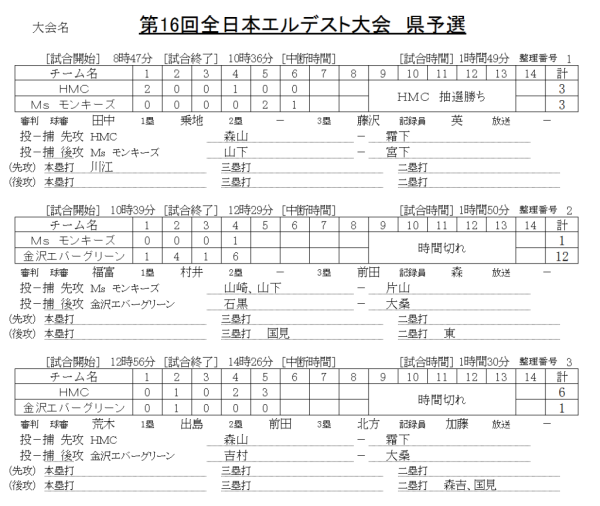 大会名 第16回全日本エルデスト大会 県予選
[試合開始] 8時47分 [試合終了] 10時36分 [中断時間] [試合時間] 1時間49分 整理番号 1
チーム名 1 2 3 4 5 6 7 8 9 10 11 12 13 14 計
HMC 2 0 0 1 0 0 HMC 抽選勝ち 3
Ms モンキーズ 0 0 0 0 2 1 3
審判 球審 田中 1塁 乗地 2塁 － 3塁 藤沢 記録員 英 放送 －
投－捕 先攻 HMC 森山 － 霜下
投－捕 後攻 Ms モンキーズ 山下 － 宮下
(先攻) 本塁打 川江 三塁打 二塁打
(後攻) 本塁打 三塁打 二塁打
[試合開始] 10時39分 [試合終了] 12時29分 [中断時間] [試合時間] 1時間50分 整理番号 2
チーム名 1 2 3 4 5 6 7 8 9 10 11 12 13 14 計
Ms モンキーズ 0 0 0 1 時間切れ 1
金沢エバーグリーン 1 4 1 6 12
審判 球審 福富 1塁 村井 2塁 － 3塁 前田 記録員 森 放送 －
投－捕 先攻 Ms モンキーズ 山崎、山下 － 片山
投－捕 後攻 金沢エバーグリーン 石黒 － 大桑
(先攻) 本塁打 三塁打 二塁打
(後攻) 本塁打 三塁打 国見 二塁打 東
[試合開始] 12時56分 [試合終了] 14時26分 [中断時間] [試合時間] 1時間30分 整理番号 3
チーム名 1 2 3 4 5 6 7 8 9 10 11 12 13 14 計
HMC 0 1 0 2 3 時間切れ 6
金沢エバーグリーン 0 1 0 0 0 1
審判 球審 荒木 1塁 出島 2塁 前田 3塁 北方 記録員 加藤 放送 －
投－捕 先攻 HMC 森山 － 霜下
投－捕 後攻 金沢エバーグリーン 吉村 － 大桑
(先攻) 本塁打 三塁打 二塁打
(後攻) 本塁打 三塁打 二塁打 森吉、国見